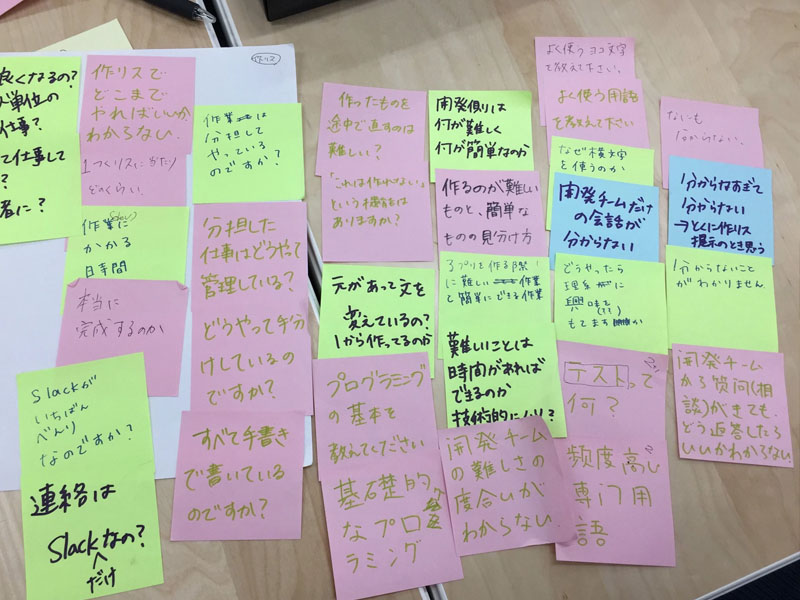 良くなるの?
単位の
仕事?
て仕事して
?
者に?
作リス
作リスで
どこまで
やればいいか
わからない.
1つくリスにあたり
どのくらい
作業に
かかる
日時間
本当に
完成するのか
Slackが
いちばん
べんり
なのですか?
連絡は
Slackなの?
だけ
作業は
分担して
やっている
のですか?
分担した
仕事はどうやって
管理している?
どうやって手分
けしているの
ですか?
すべて手書き
で書いている
のですか?
作ったものを
途中で直すのは
難しい?
「これは作れない」
という機能は
ありますか?
元があって文を
変えているの?
1から作ってるのか
プログラミング
の基本を
教えてください
基礎的
なプロ
ラミング
開発側は
何が難しく
何が簡単なのか
作るのが難しい
ものと、簡単な
ものの見分け方
アプリを作る際
に難しい作業
と簡単にできる作業
難しいことは
時間があれば
できるのか
技術的にムリ?
開発チーム
の難しさの
度合いが
わからない
よく使うヨコ文字
を教えて下さい.
よく使う用語
を教えて下さい
なぜ横文字
を使うのか
開発チームだけ
の会話が
分からない
どうやったら
理系に
興味を
もてますか
テストって
何?
頻度高い
専門用
語
なにも
分からない.
分からなすぎて
分からない
→とくに作リス
提示のとき思う
分からないこと
がわかりません
開発チーム
から質問(相
談)がきても、
どう返答したら
いいかわからない